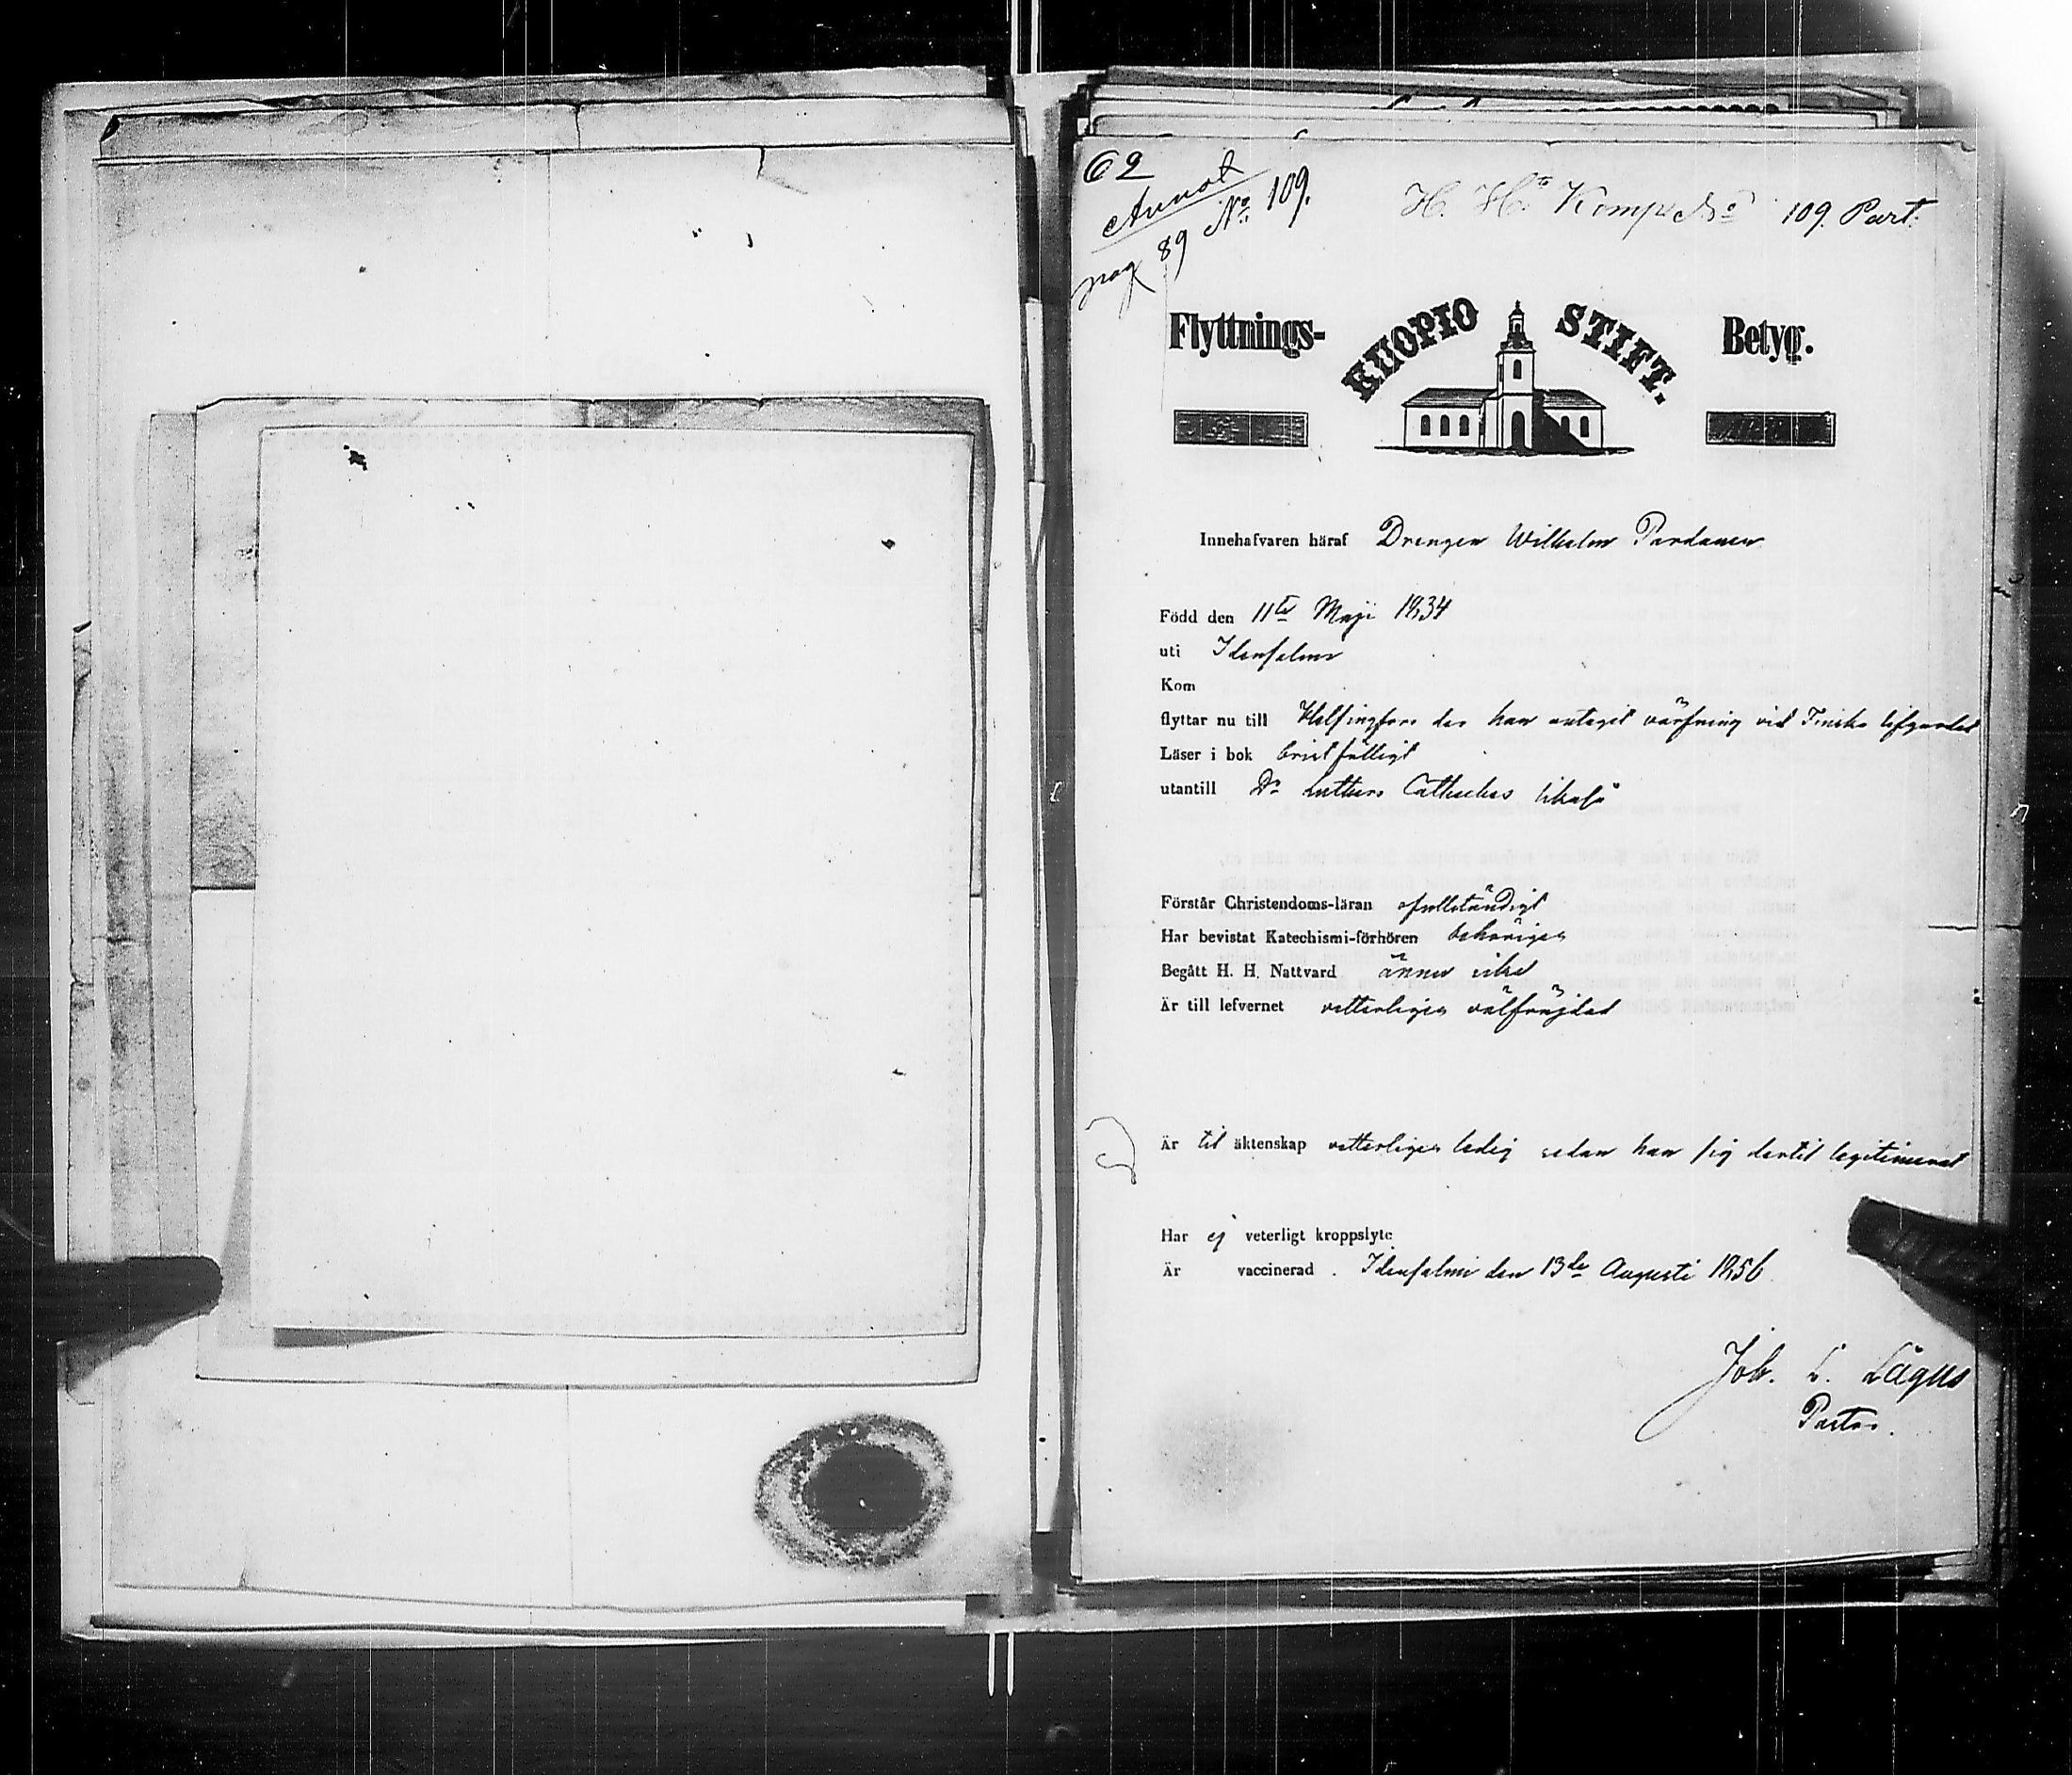 62
Annot
pag 89 No 109.
H. Hn Komp No 109. Part.
Flyttnings- KUOPIO STIFT. Betyg.
Innehafvaren häraf Drengen Wilhelm Pardanen
Född den 11te Maji 1834
uti Idensalmi
Kom
flyttar nu till Helsingfors der han antagit värfning vid Finska lifgardet
Läser i bok bristfälligt
utantill Dr Luthers Catheches likaså
Förstår Christendoms-läran ofullständigt
Har bevistat Katechismi-förhören behörigen
Begått H. H. Nattvard ännu icke
Är till lefvernet vetterligen välfräjdad
Är til äktenskap vetterligen ledig sedan han sig dertil legitimerat
Har ej veterligt kroppslyte
Är vaccinerad . Idensalmi den 13de Augusti 1856
Joh. L. Lagus
Pastor.